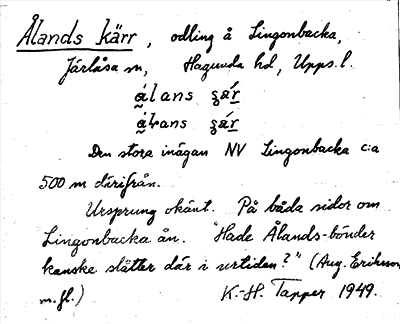 Ålands kärr, odling å Lingonbacka,
Järlåsa sn, Hagunda hd, Upps. l.
álans şár
áLans şár
Den stora inägan NV Lingonbacka c:a
500 m därifrån.
Ursprung okänt. På båda sidor om
Lingonbacka ån. "Hade Ålands-bönder
kanske slåtter där i urtiden?" (Aug. Eriksson
m.fl.) K.-H. Tapper 1949.